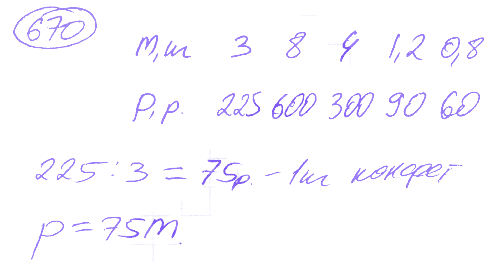 670
m, кг 3 8 4 1,2 0,8
P, р. 225 600 300 90 60
225 : 3 = 75р. - 1кг конфет
p = 75m.